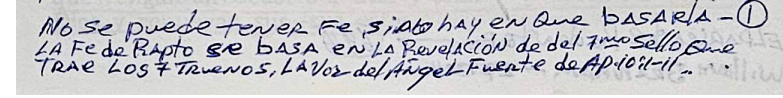 No se puede tener Fe, si no hay en que basarla - ①
La Fe de Rapto se basa en la Revelación de del 7mo Sello que
trae los 7 Truenos, la Voz del Ángel Fuerte de Ap. 10:1-11...